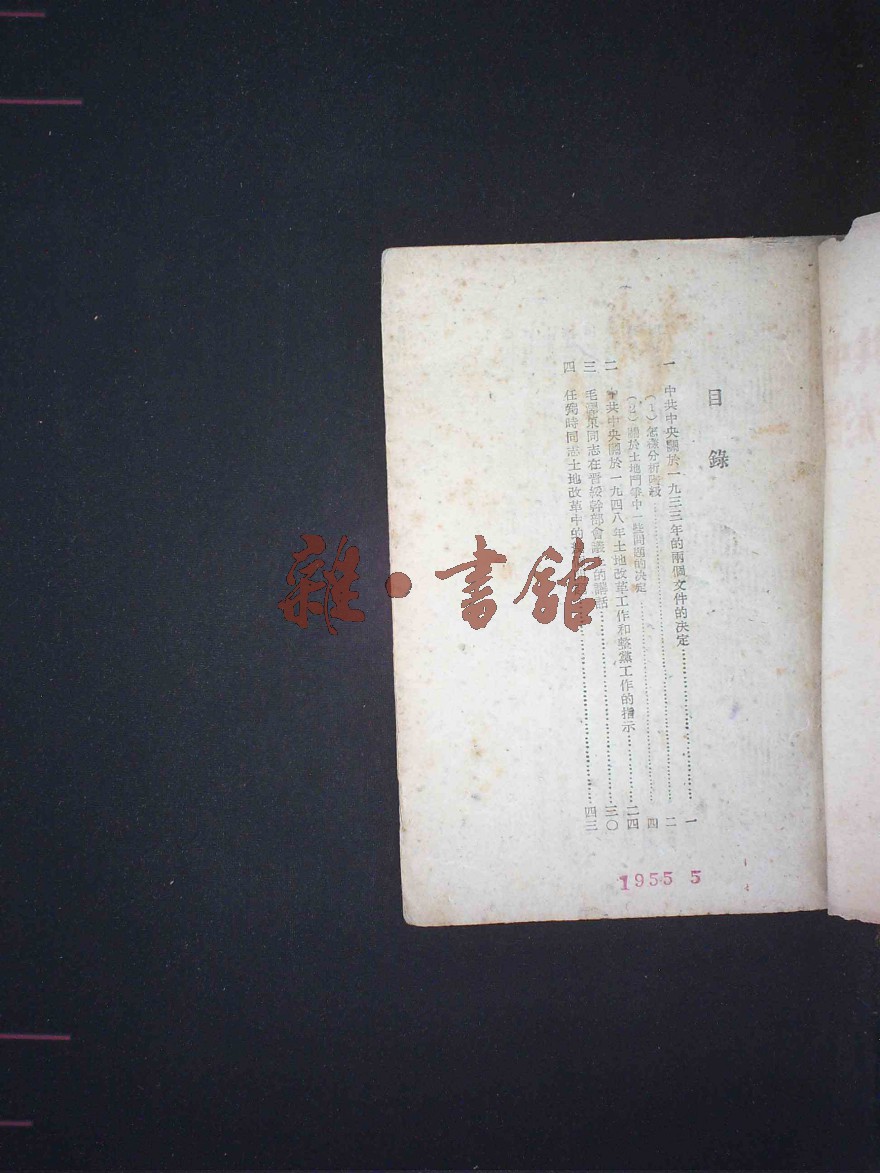 目錄
一 中共中央關於一九三三年的兩個文件的決定……一
（1）怎樣分析階級……二
（2）關於土地鬥爭中一些問題的決定……四
二 中共中央關於一九四八年土地改革工作和整黨工作的指示……二四
三 毛澤東同志在晉綏幹部會議上的講話……三〇
四 任弼時同志土地改革中的……四三
1955 5
雜·書館